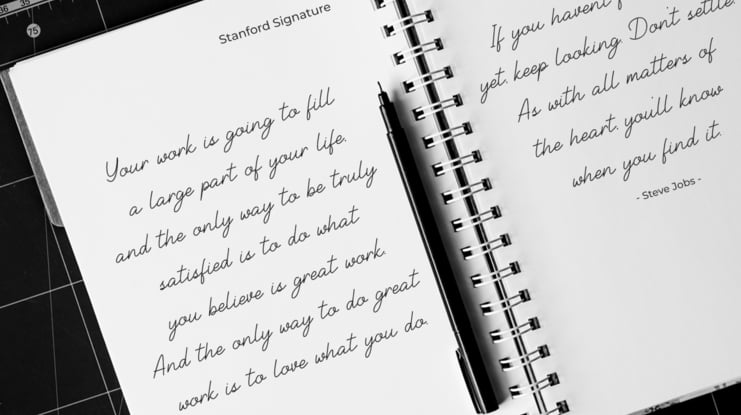 36
35
75
Stanford Signature
Your work is going to fill
a large part of your life.
and the only way to be truly
satisfied is to do what
you believe is great work.
And the only way to do great
work is to love what you do.
If you haven't
yet. keep looking. Don't settle.
As with all matters of
the heart. you'll know
when you find it.
- Steve Jobs -